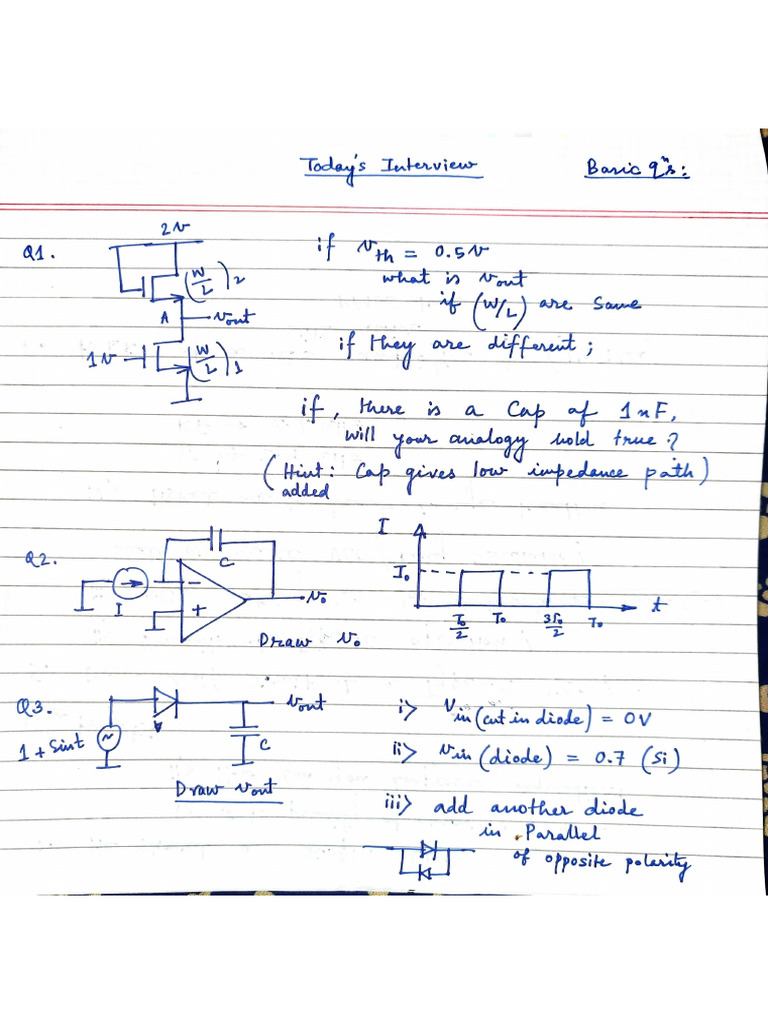 Today's Interview Basic qⁿs:
Q1.
2v
(W/L)2
A
vout
1v
(W/L)1
if vth = 0.5v
what is vout
if (W/L) are same
if they are different;
if, there is a Cap of 1nF,
will your analogy hold true?
(Hint: Cap gives low impedance path)
added
Q2.
C
I
-
+
vo
Draw vo
I
Io
To/2 To 3To/2 To
t
Q3.
1 + sint
vout
C
Draw vout
i> Vin (cut in diode) = 0V
ii> vin (diode) = 0.7 (si)
iii> add another diode
in Parallel
of opposite polarity